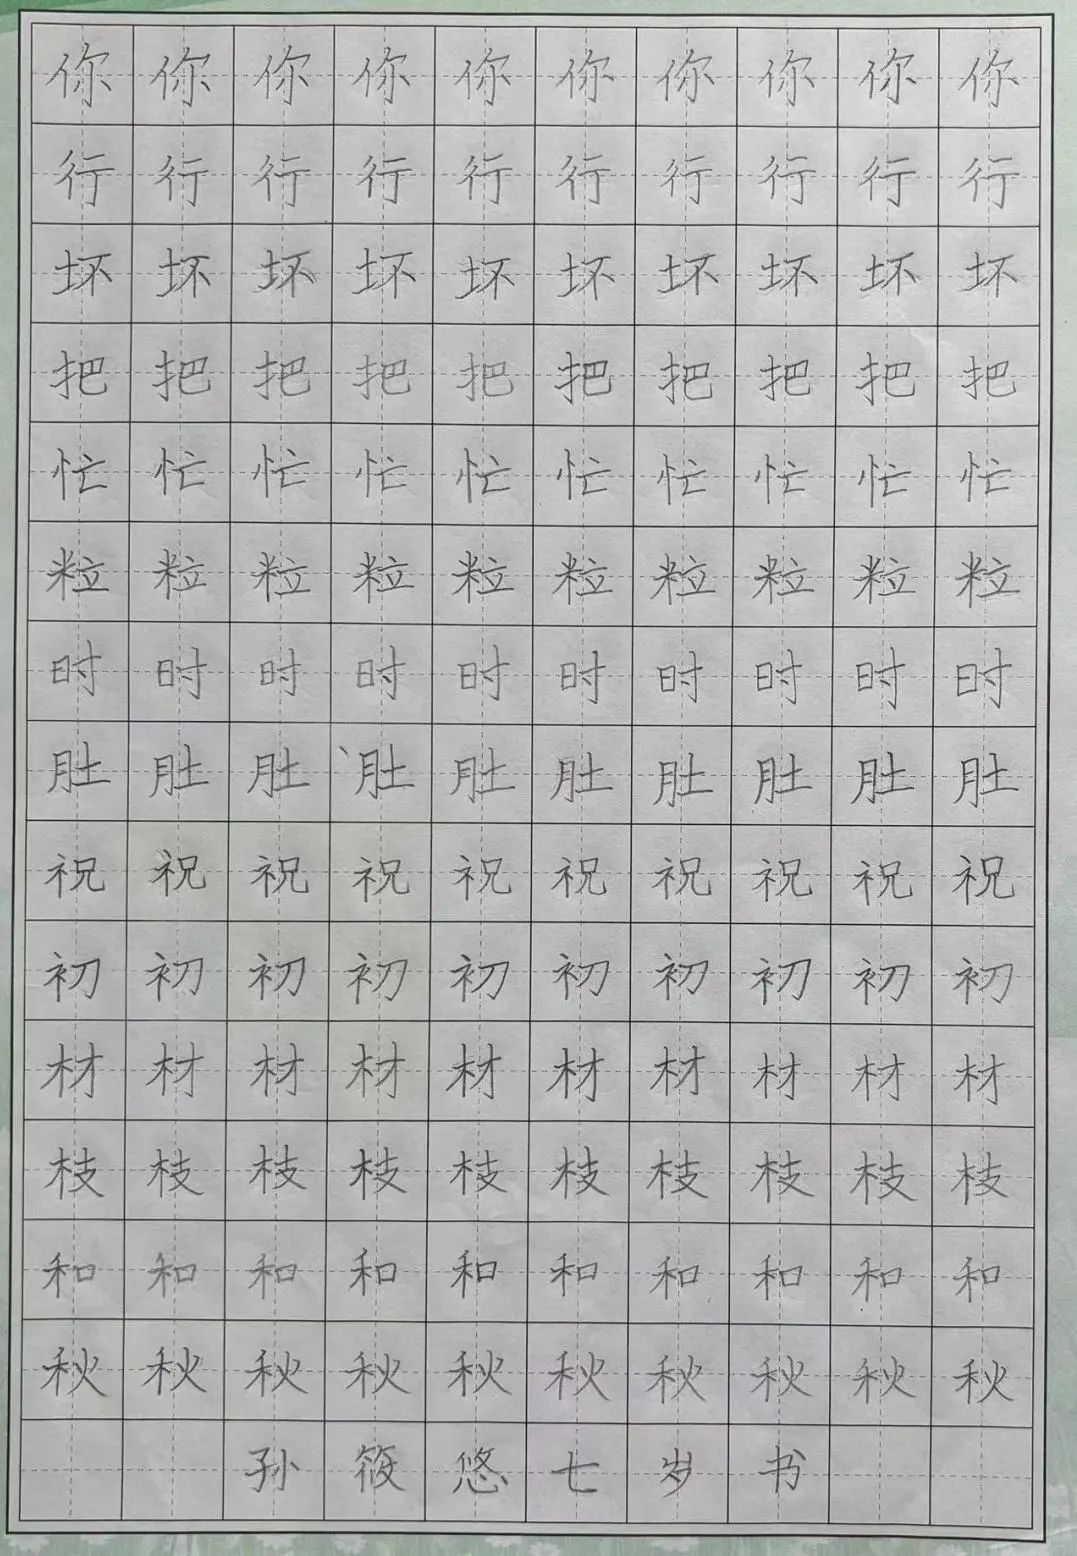 你你你你你你你你你你
行行行行行行行行行行
坏坏坏坏坏坏坏坏坏坏
把把把把把把把把把把
忙忙忙忙忙忙忙忙忙忙
粒粒粒粒粒粒粒粒粒粒
时时时时时时时时时时
肚肚肚肚肚肚肚肚肚肚
祝祝祝祝祝祝祝祝祝祝
初初初初初初初初初初
材材材材材材材材材材
枝枝枝枝枝枝枝枝枝枝
和和和和和和和和和和
秋秋秋秋秋秋秋秋秋秋
孙筱悠七岁书